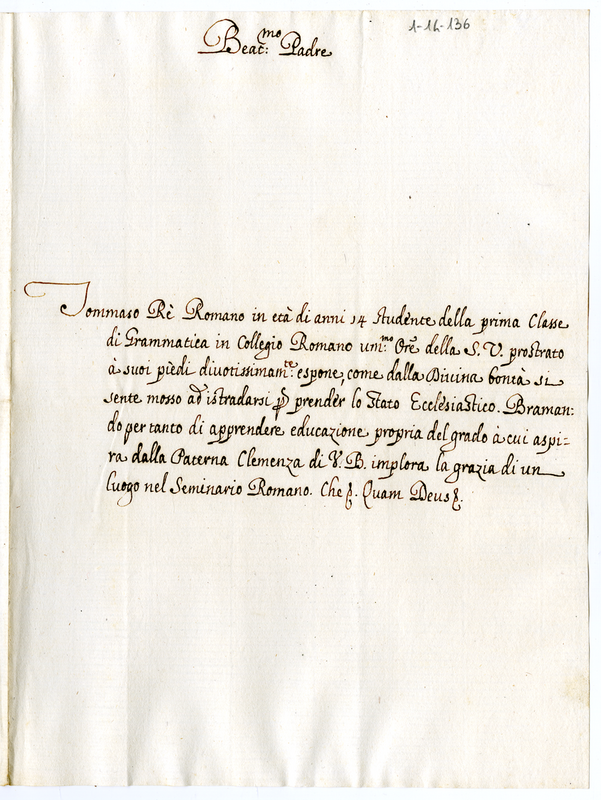 1-14-136
Beat:mo Padre
Tommaso Rè Romano in età di anni 14 Studente della prima Classe
di Grammatica in Collegio Romano um:mo Ore della S. V. prostrato
à suoi piedi divotissimam:te espone, come dalla Divina bontà si
sente mosso ad istradarsi p prender lo Stato Ecclesiastico. Braman:
do per tanto di apprendere educazione propria del grado à cui aspi:
ra dalla Paterna Clemenza di V. B. implora la grazia di un
luogo nel Seminario Romano. Che &. Quam Deus &.